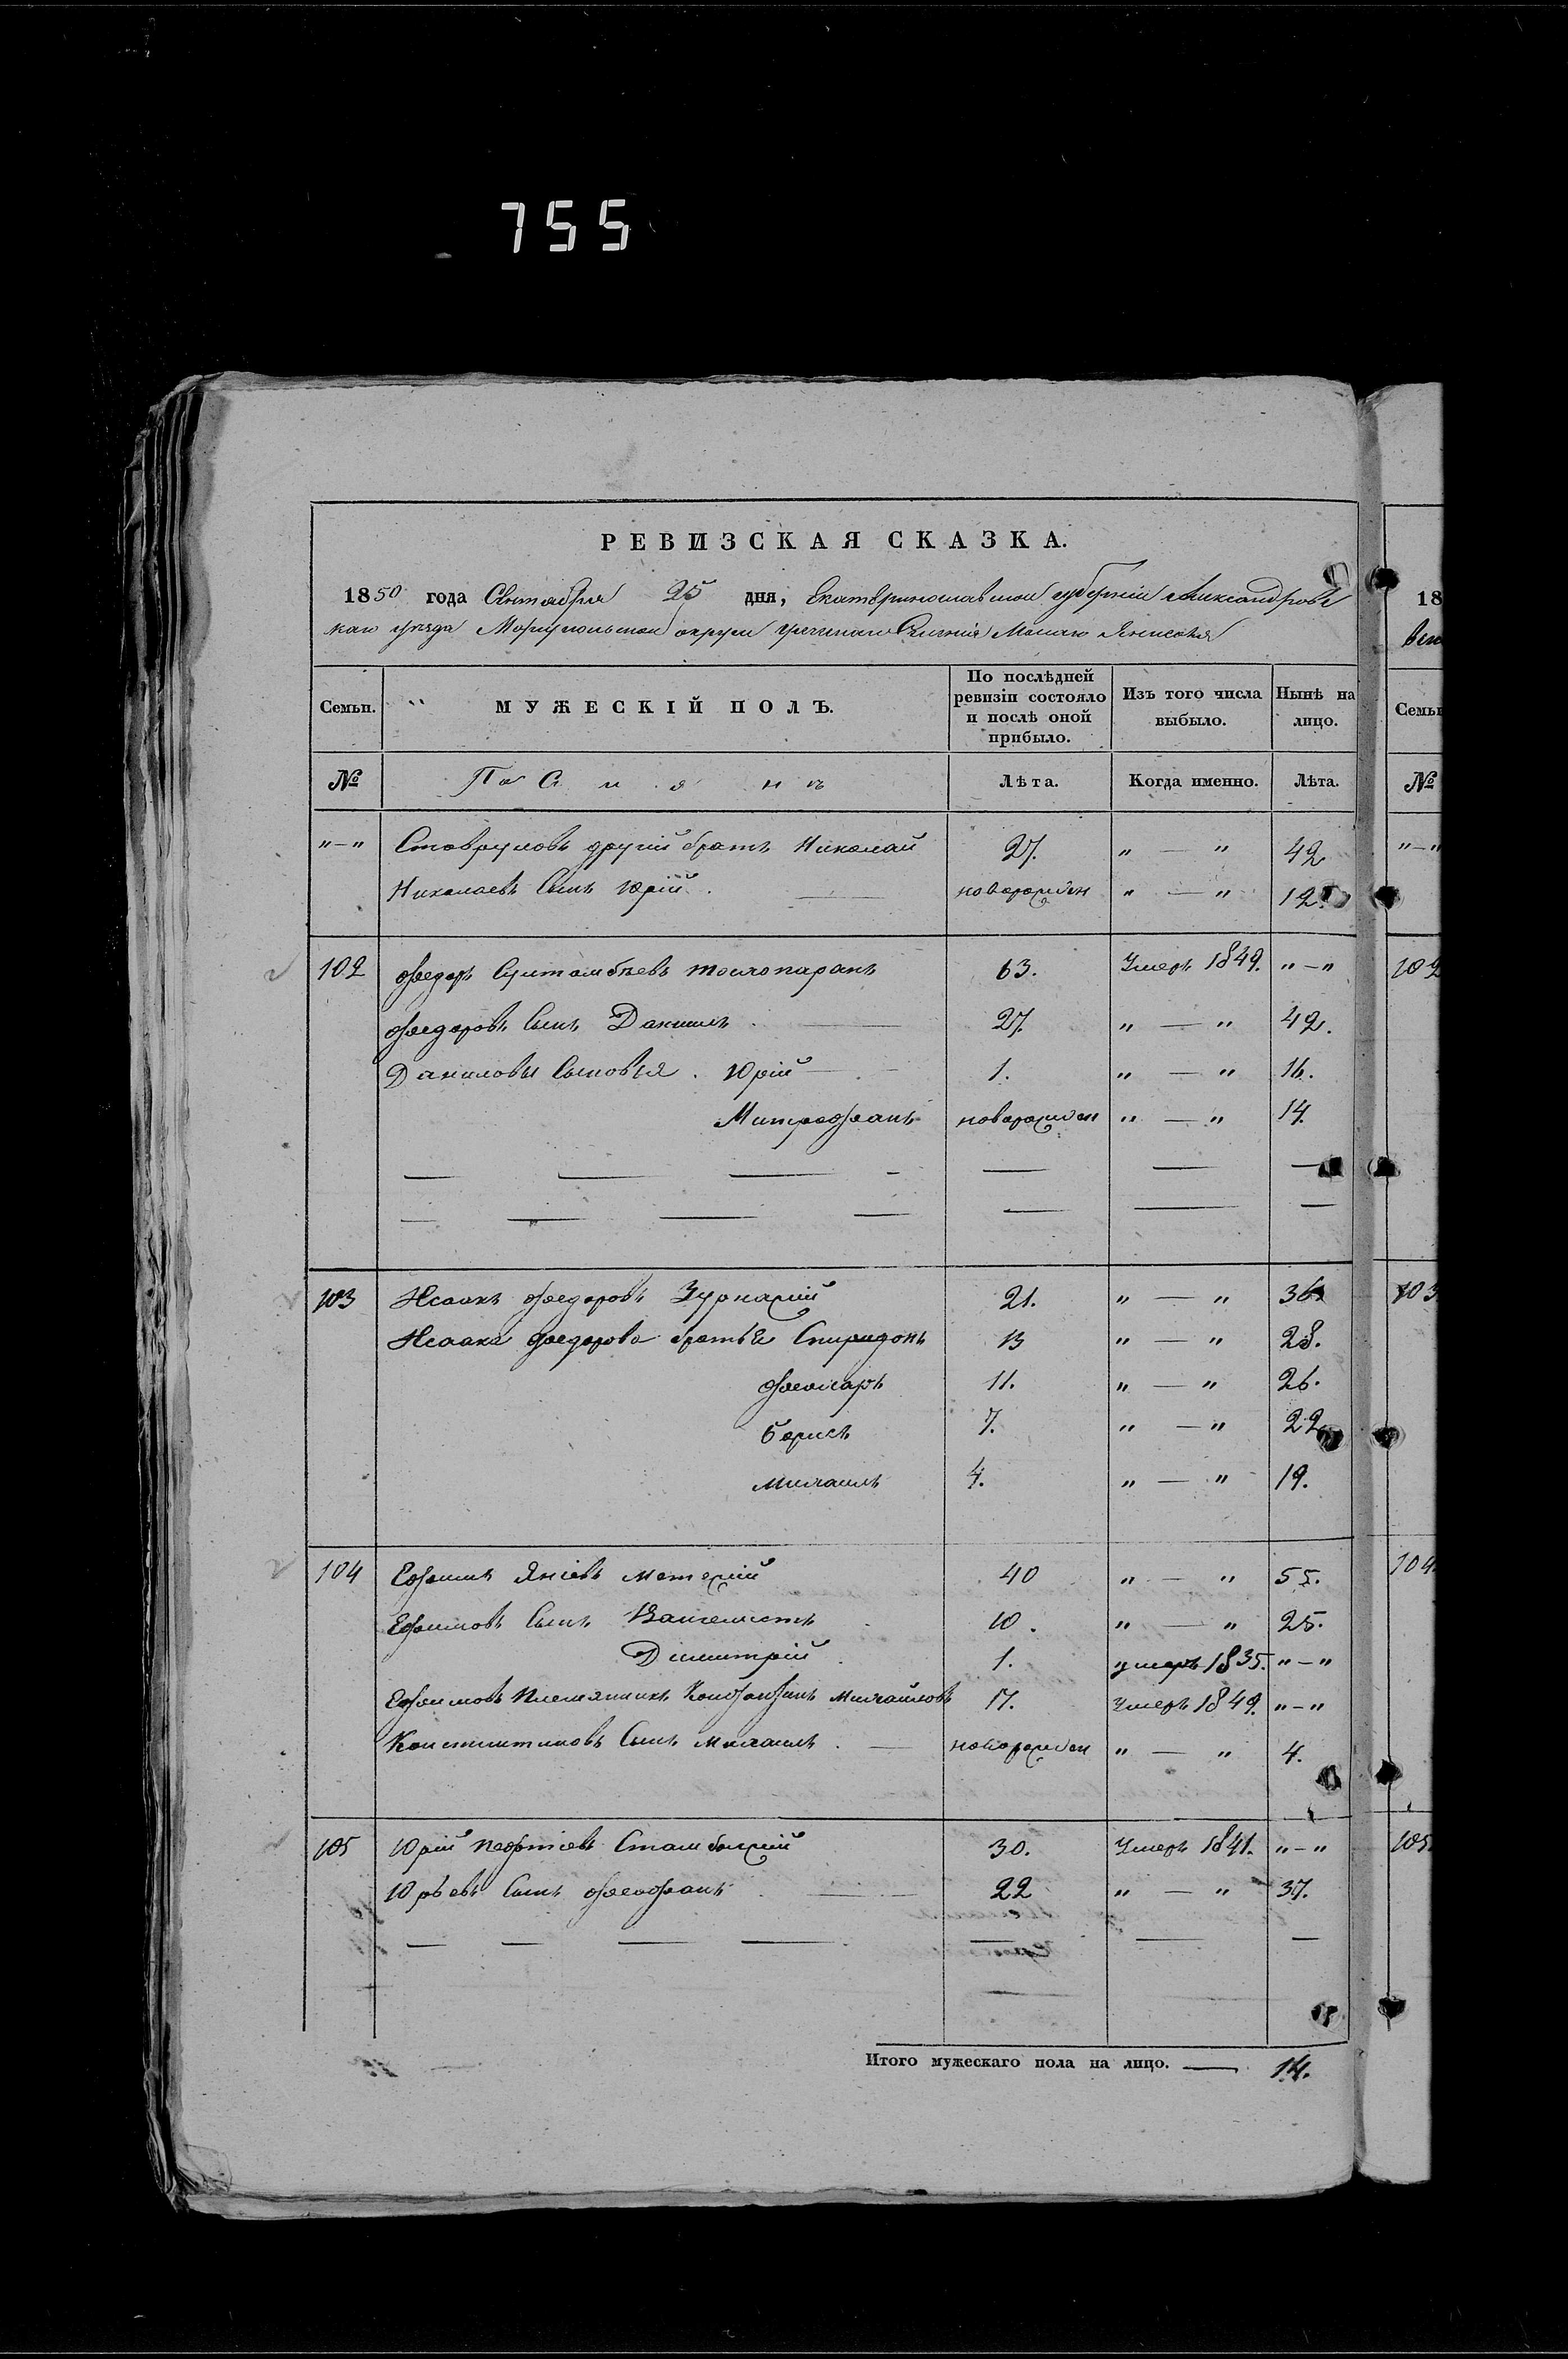 755
РЕВИЗСКАЯ СКАЗКА.
1850 года Сентября 25 дня, Екатеринославской губерніи Александровс
каго уезда Моріупольскаго округи греческаго селенія Малаго Янисоля
Семьи. МУЖЕСКІЙ ПОЛЪ. По послѣдней ревизіи состояло и послѣ оной прибыло. Изъ того числа выбыло. Нынѣ на лицо. Семьи
№ Поселянъ Лѣта. Когда именно. Лѣта. №
"–" Ставруловъ другій братъ Николай 27. " — " 42 "–"
Николаевъ сынъ Юрій. новорожден " — " 12.
102 Федоръ Султамбѣевъ 63. Умеръ 1849. "–" 102
Федоровъ сынъ Данилъ. 27. " — " 42.
Даниловы сыновья. Юрій 1. " — " 16.
Митрофанъ новорожден " — " 14.
103 Исаакъ Федоровъ Зурнажій 21. " — " 36. 103
Исаака Федорова братья Спиридонъ 13 " — " 28.
11. " — " 26.
Борисъ 7. " — " 22
Михаилъ 4. " — " 19.
104 Ефимъ Яніевъ 40 " — " 55. 104
Ефимовъ сынъ 10. " — " 25.
Димитрій. 1. умеръ 1835. "–"
Ефимовъ племянникъ Михайловъ 17. Умеръ 1849. "–"
Константиновъ сынъ Михаилъ. новорожден " — " 4.
105 Юрій Стамболжій 30. Умеръ 1841. "–" 105
Юрьевъ сынъ Феофанъ. 22 " — " 37.
Итого мужескаго пола на лицо. — 14.
18